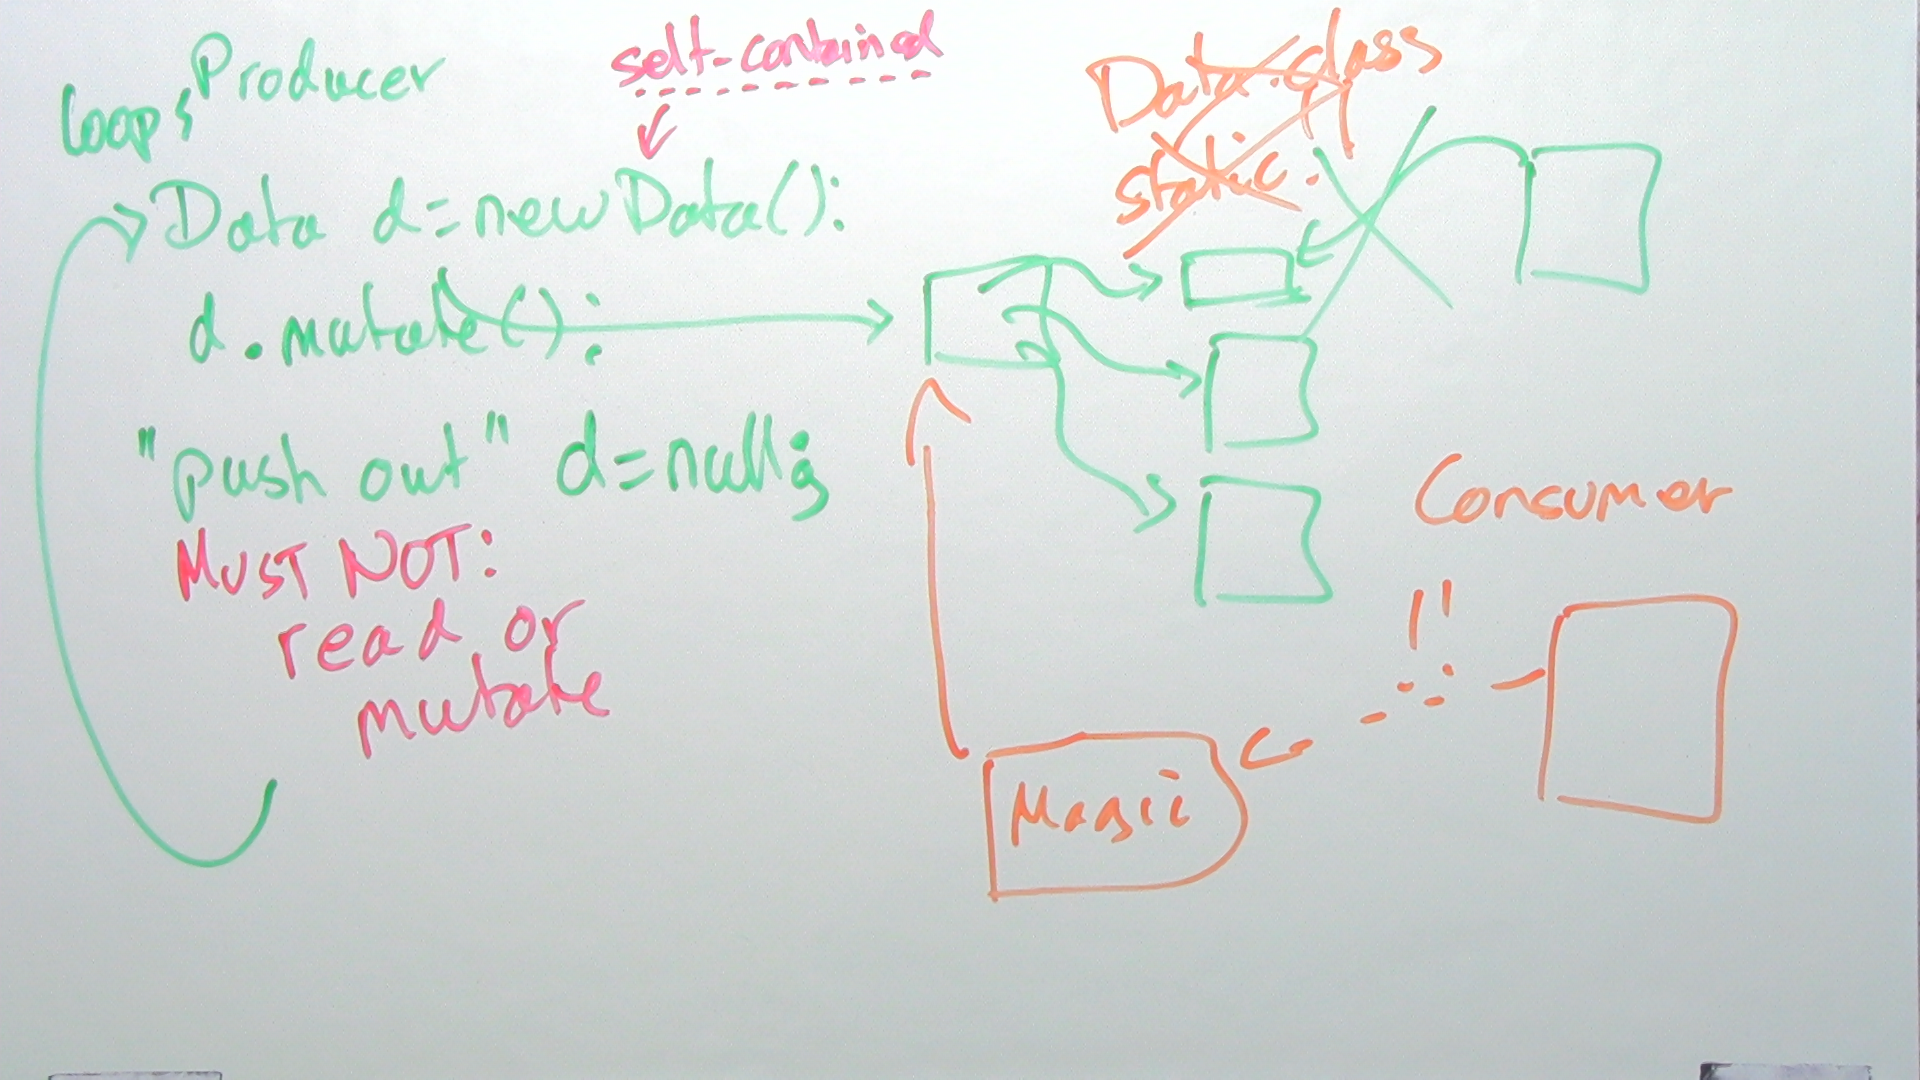 Producer
loops
self-contained
Data d=new Data();
d.mutate();
"push out" d=null;
MUST NOT:
read or
mutate
Data.class
static.
Consumer
!!
Magic